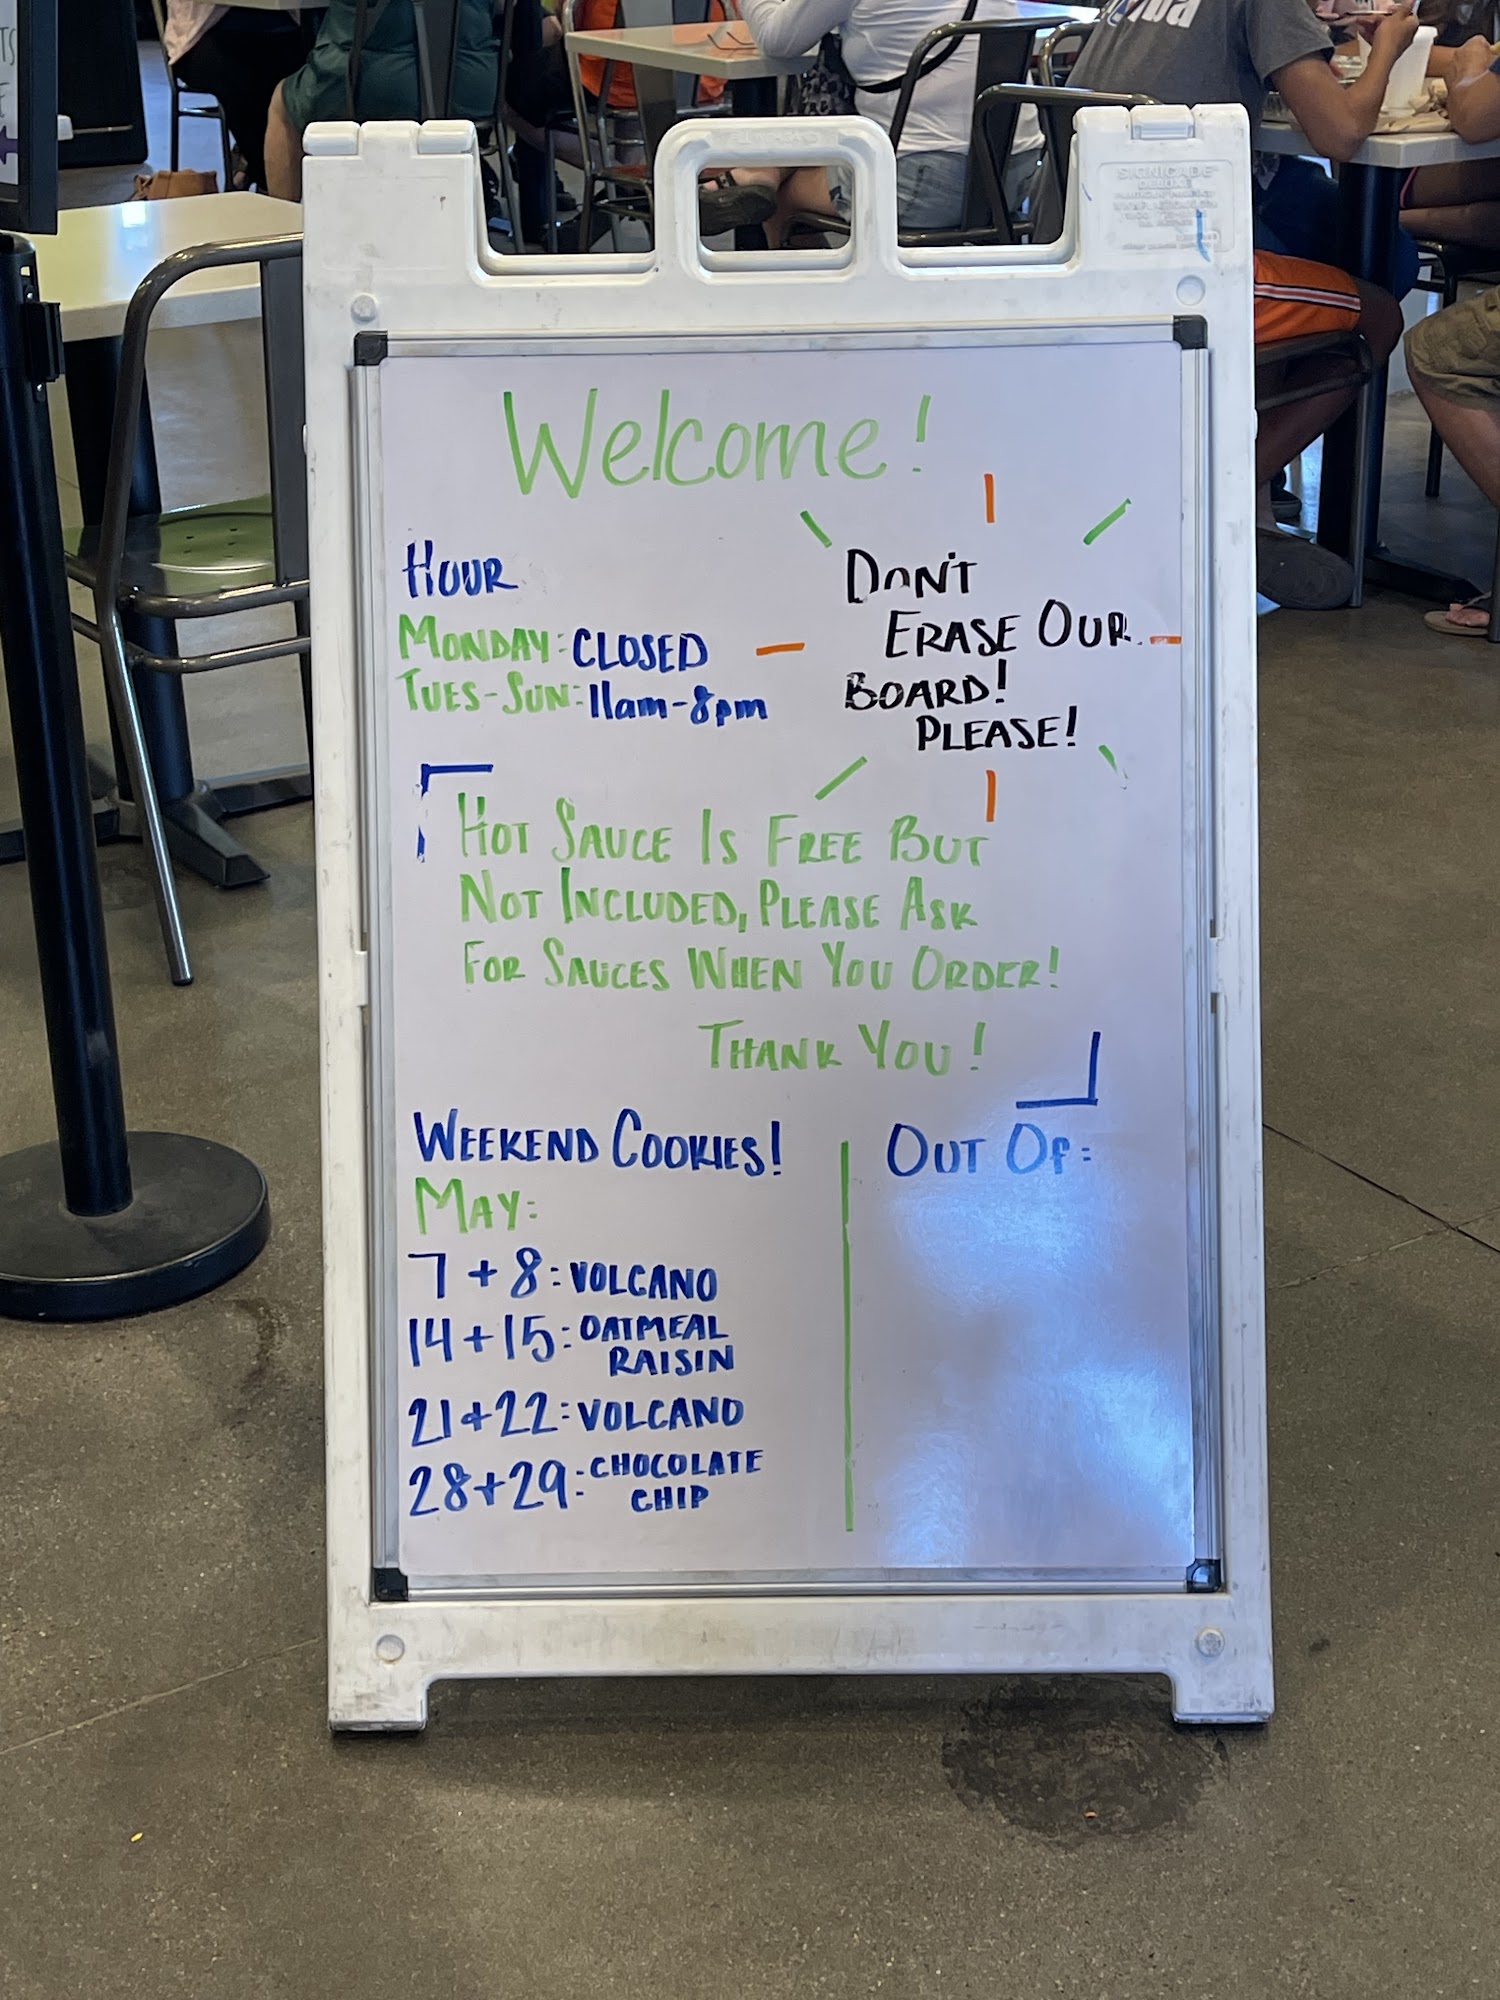 Welcome!
HOUR
MONDAY: CLOSED
TUES-SUN: 11am-8pm
DON'T
ERASE OUR
BOARD!
PLEASE!
HOT SAUCE IS FREE BUT
NOT INCLUDED, PLEASE ASK
FOR SAUCES WHEN YOU ORDER!
THANK YOU!
WEEKEND COOKIES!
MAY:
7+8: VOLCANO
14+15: OATMEAL
RAISIN
21+22: VOLCANO
28+29: CHOCOLATE
CHIP
OUT OF:
SIGNICADE
DELUXE